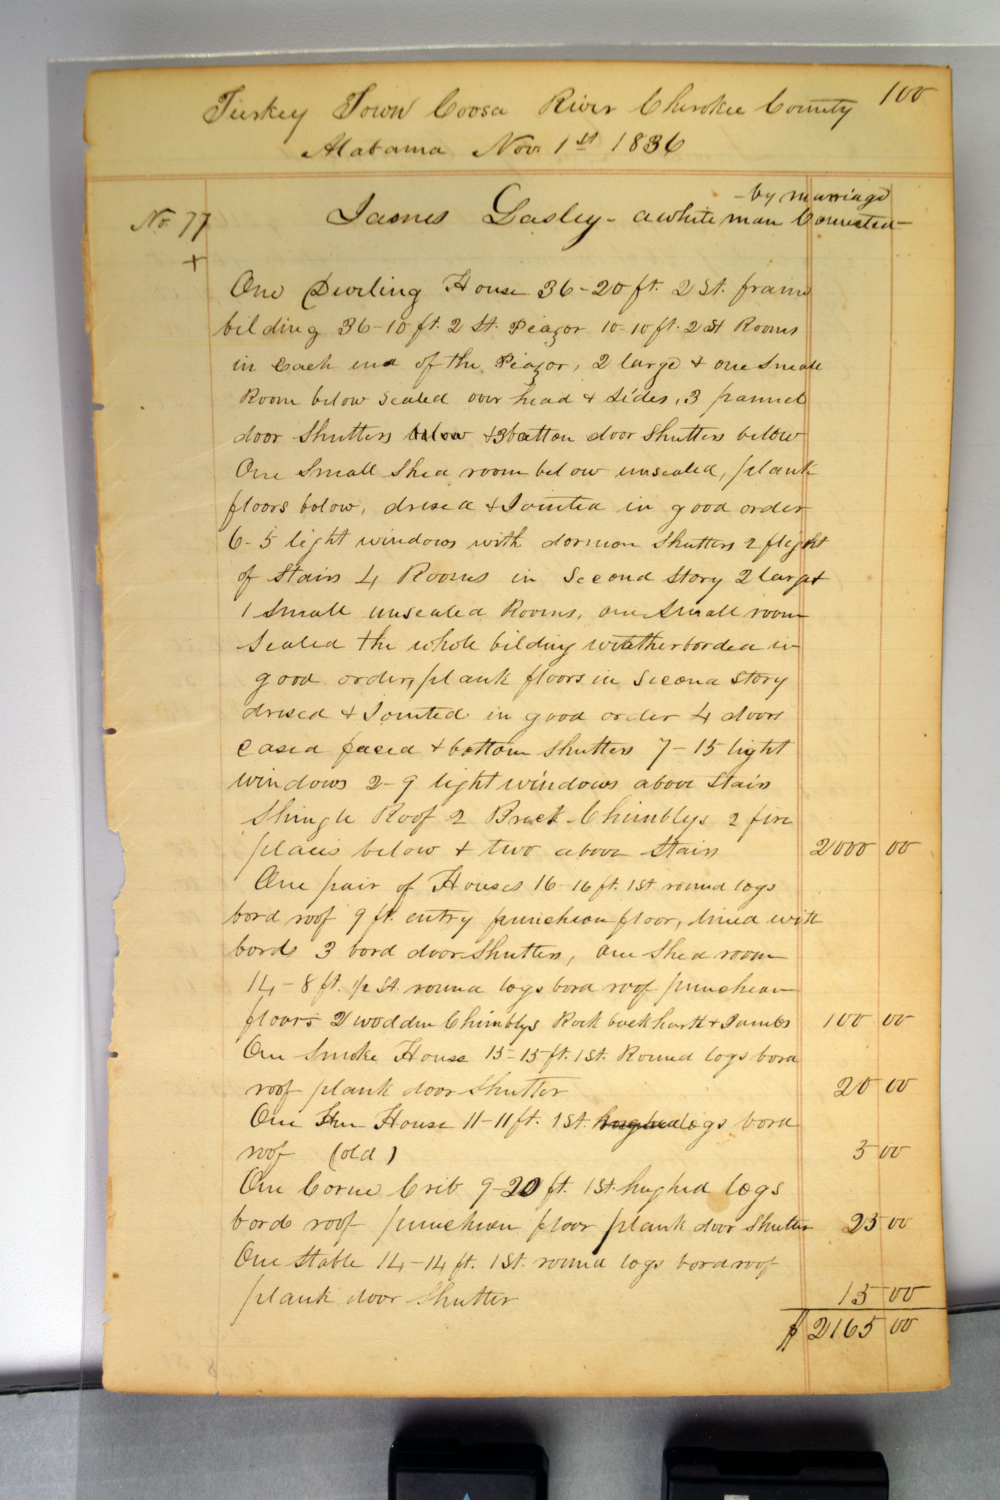 100
Turkey Town Coosa River Cherokee County
Alabama Nov. 1st 1836
No. 77 James Lasley - a white man Connected
- by marriage
+
One Dweling House 36-20 ft. 2 St. frame
bilding 36-10 ft. 2 St. Piazor 10-10 ft. 2 St Rooms
in Each end of the Piazor, 2 large & one Small
Room below sealed over head & sides, 3 pannel
door Shutters below & 3 batton door Shutters below
One Small Shed room below unsealed, plank
floors bolow, dresed & Jointed in good order
6-5 light windows with dormon Shutters 2 flight
of Stairs 4 Rooms in Second Story 2 large &
1 Small unsealed Rooms, one Small room
Sealed the whole bilding weatherborded in
good order, plank floors in Second Story
dresed & Jointed in good order 4 doors
Cased faced & bottom shutters 7-15 light
windows 2-9 light windows above Stairs
Shingle Roof 2 Brick Chimblys 2 fire
places below & two above Stairs 2000 00
One pair of Houses 16-16 ft. 1 St. round logs
bord roof 9 ft. entry puncheon floor, lined with
bords 3 bord door Shutters, one Shed room
14-8 ft. 1/2 St. round logs bord roof puncheon
floors 2 wodden Chimblys Rock back harth & Jambs 100 00
One Smoke House 15-15 ft. 1 St. Round logs bord
roof plank door Shutter 20 00
One Hen House 11-11 ft. 1 St. logs bord
roof (old) 5 00
One Corne Crib 9-20 ft. 1 St. hughed logs
bords roof puncheon floor plank door Shutter 25 00
One Stable 14-14 ft. 1 St. round logs bord roof
plank door Shutter 15 00
$ 2165 00